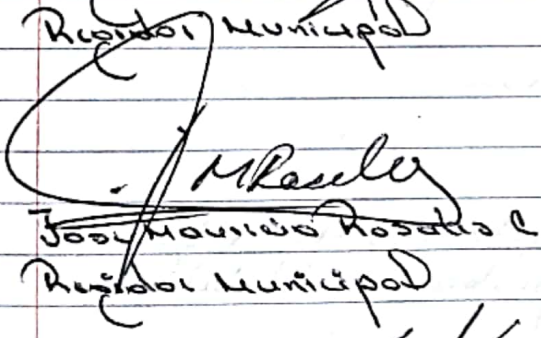 Regidor Municipal
J M Rosales
Jose Mauricio Rosales C
Regidor Municipal